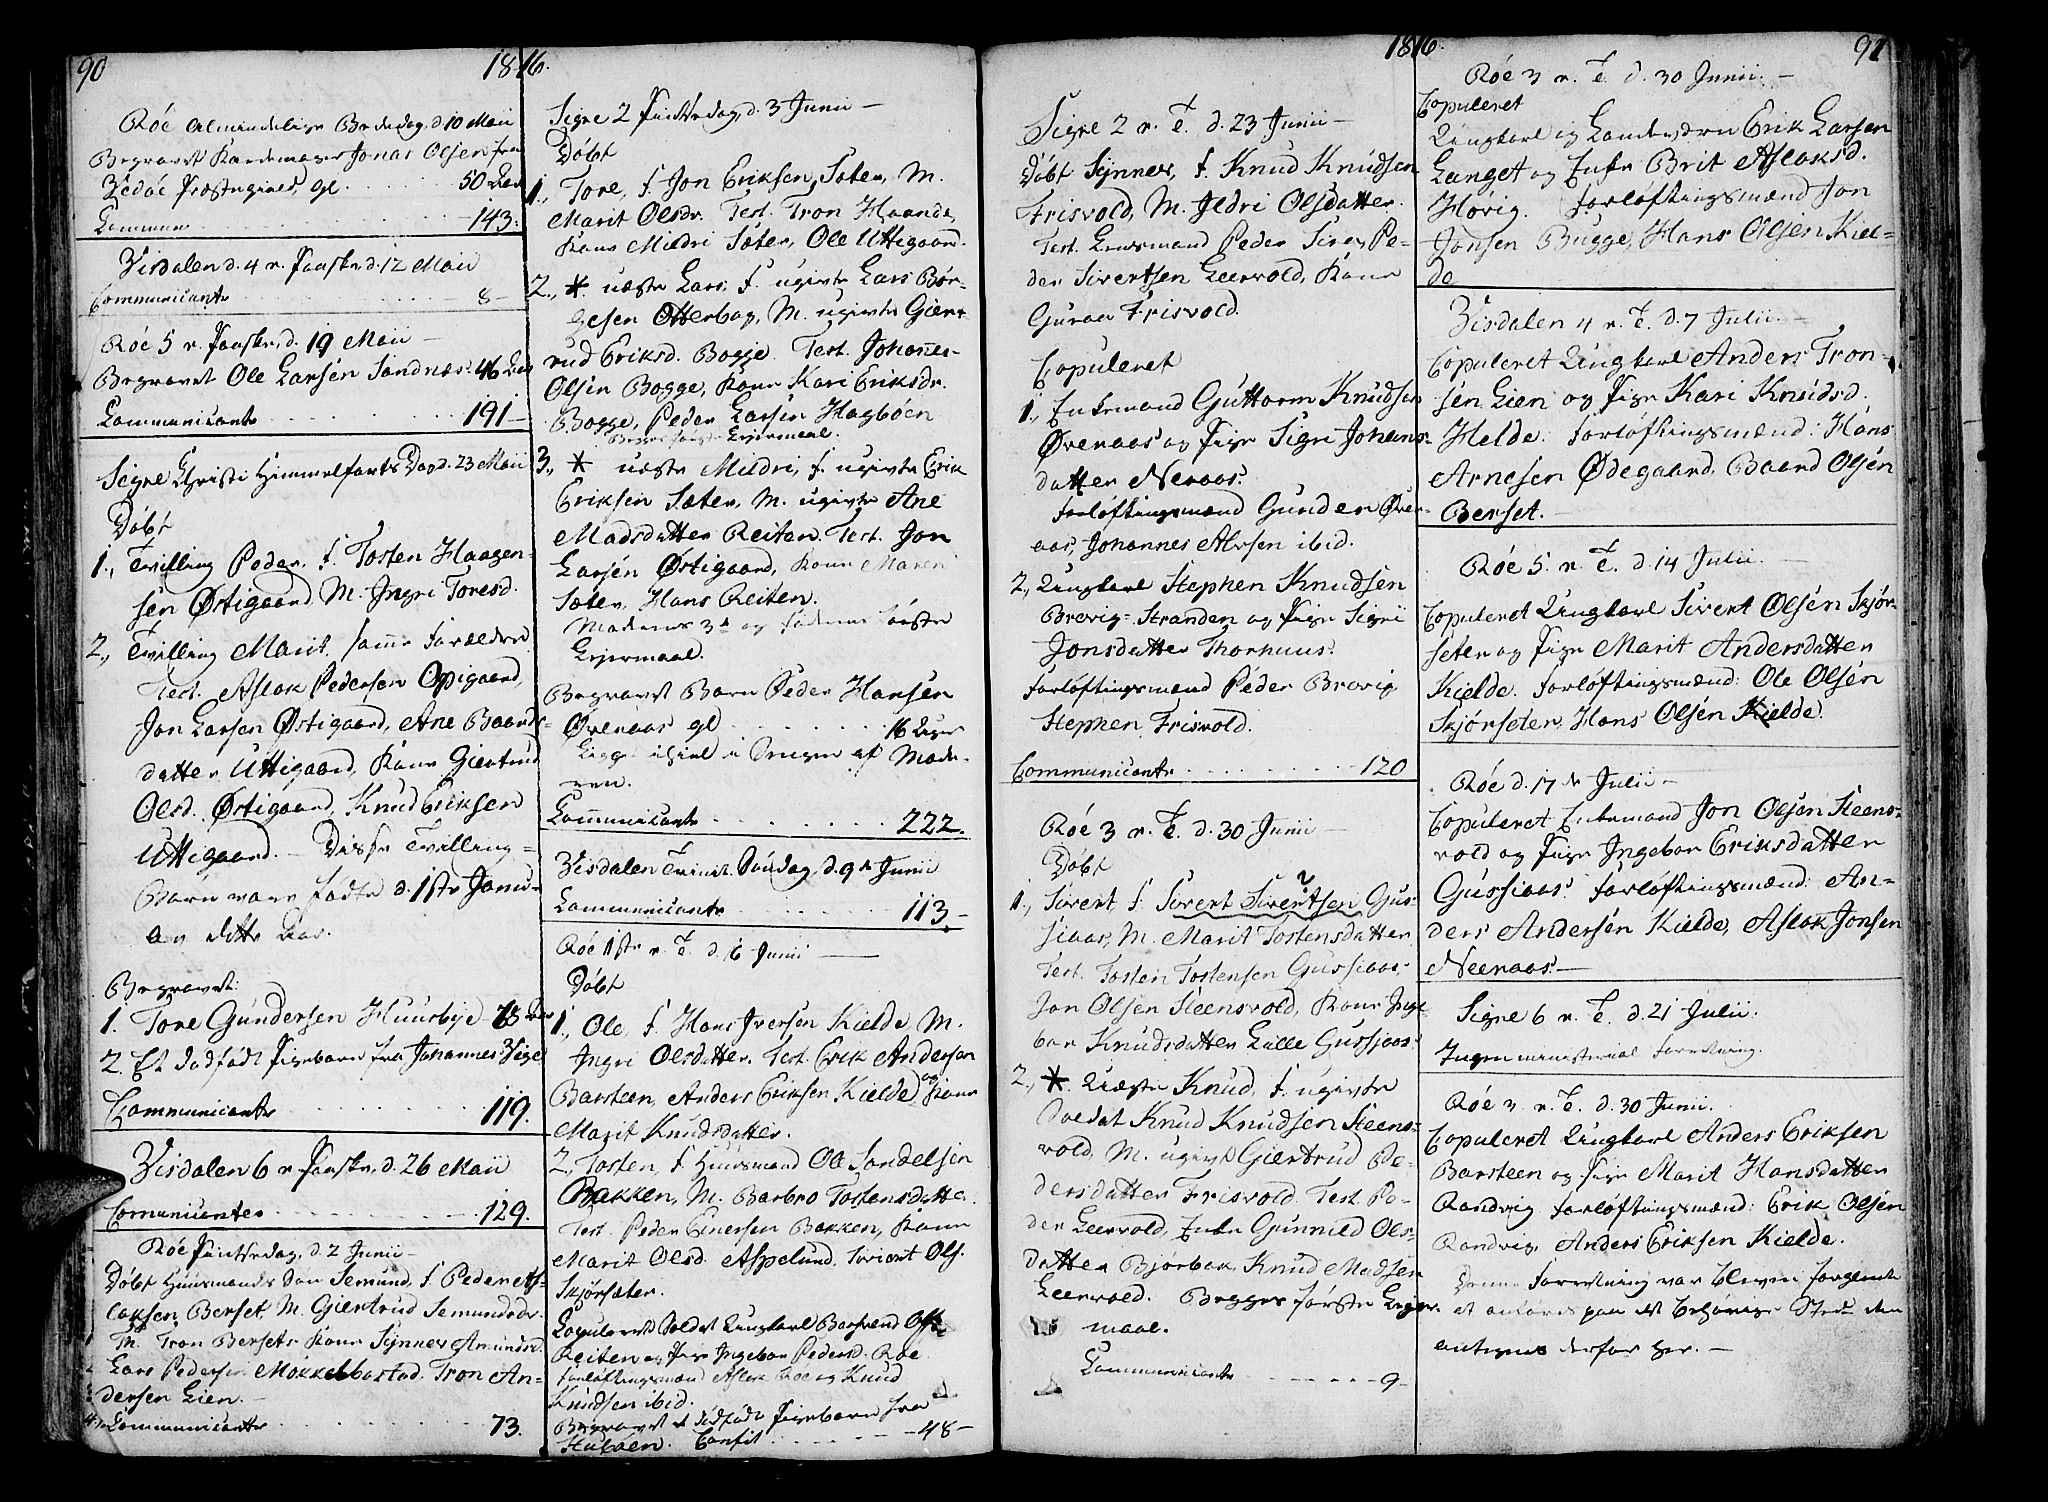 90
1816.
Røe Almindelige Bededag, d. 10 Maii
Begravet Kardemager Jonas Olsen fra
Vedøe Præstegield, gl. 50 Aar
Commun. 143.
Visdalen d. 4 e. Paaske, d. 12 Maii
Communicante 8
Røe 5 e. Paaske, d. 19 Maii
Begravet Ole Larsen Sandnæs 46 Aar
Communicante 191
Signe Christi Himmelfarts Dag d. 23 Maii
Døbt
1., Tvilling Peder. f. Tosten Haagen-
sen Østigaard, M. Ingri Toresd.
2., Tvilling Marit, samme Forældre
Test. Aslak Pedersen Opigaard,
Jon Larsen Østigaard, Ane Baards-
datter Uttigaard, Kone Giertrud
Olsd. Østigaard, Knud Eriksen
Uttigaard. Disse Tvilling-
Børn vare fødte d. 1ste Janu-
ar dette Aar.
Begravet:
1. Tore Gundersen Huusbye 78 Aar
2. Et dødfødt Pigebarn fra Johannes Sige
Communicante 119.
Visdalen 6 e. Paaske, d. 26 Maii
Comunicantes 129.
Røe Pintsedag, d. 2 Junii
Døbt Huusmands Søn Semund, f. Peder As-
laksen Berset, M. Giertrud Semundsdr.
T. Tron Bersets Kone Synnev Amundsd.
Lars Pedersen Mokkelbostad, Tron An-
dersen Lien.
Communicante 73.
Signe 2 Pintsedag, d. 3 Junii
Døbt
1., Tore, f. Jon Eriksen Sæter, M.
Marit Olsdr. Test. Tron Haande,
Kone Mildri Sæter, Ole Uttigaard.
2., * uægte Lars. f. ugivte Lars Bør-
gesen Otterbog, M. ugivte Giert-
rud Eriksd. Bogge. Test. Johannes
Olsen Bogge, Kone Kari Eriksdr.
Bogge, Peder Larsen Hagbøen
Begges første Leiermaal.
3., * uægte Mildri, f. ugivte Erik
Eriksen Sæter, M. ugivte Ane
Madsdatter Reiten. Test. Jon
Larsen Østigaard, Kone Maren
Sæter, Hans Reiten.
Moderens 3d og Faderens første
Leiermaal.
Begravet Barn Peder Hansen
Øvenaas gl. 16 Uger
Ligget ihiel i Sengen af Mode-
ren.
Communicante 222.
Visdalen Trinit. Søndag, d. 9de Junii
Communicante 113.
Røe 1ste e. T. d. 16 Junii
Døbt
1., Ole, f. Hans Iversen Kielde, M.
Ingri Olsdatter. Test. Erik Andersen
Barsteen, Anders Eriksen Kielde, og Kone
Marit Knudsdatter.
2., Tosten, f. Huusmand Ole Sandelsen
Bakken, M. Barbro Tostensdatter.
Test. Peder Einersen Bakken, Kone
Marit Olsd. Aspelund, Sivert Ols.
Skjørsæter.
Copuleret Soldat Ungkarl Baste
Reiten og Pige Ingebor Pedersd. Roe
Forløftingsmænd Aslak Roe og Knud
Knudsen ibid.
Begravet et dødfødt Pigebarn fra
Confit. 48
1816.
Signe 2 e. T. d. 23 Junii
Døbt Synnev, f. Knud Knudsen
Frisvold, M. Ildri Olsdatter.
Test. Lensmand Peder Sire, Pe-
der Sivertsen Leervold, Kone
Guraa Frisvold.
Copuleret
1., Enkemand Guttorm Knudsen
Øvenaas og Pige Sigri Johans-
datter Neraas.
Forløftingsmænd Gunder Øven-
aas, Johannes Alvsen ibid.
2., Ungkarl Stephen Knudsen
Brevig-Stranden og Pige Sigri
Jonsdatter Thorhuus.
Forløftingsmænd Peder Brevig,
Stephen Frisvold.
Communicante 120
Røe 3 e. T. d. 30 Junii
Døbt
1., Sivert, f. Sivert Sivertsen Gus-
siaas, M. Marit Tostensdatter
Test. Tosten Tostensen Gussiaas,
Jon Olsen Steensvold, Kone Inge-
bor Knudsdatter Lille Gussiaas.
2., * Uægte Knud, f. ugivte
Soldat Knud Knudsen Steens-
vold, M. ugivt Giertrud Pe-
dersdatter Frisvold. Test. Pe-
der Leervold, Enke Gunnild Ols-
datter Bjørbak, Knud Madsen
Leervold. Begges første Leier-
maal.
Communicante 9
91
Røe 3 e. T. d. 30 Junii.
Copuleret
Ungkarl og Landeværn Erik Larsen
Langet og Enke Brit Aslaksd.
Hovig. Forløftingsmænd Jon
Jonsen Bugge, Hans Olsen Kiel-
de
Visdalen 4 e. T. d. 7 Julii.
Copuleret Ungkarl Anders Tron-
sen Lien og Pige Kari Knudsd.
Helde. Forløftingsmænd: Hans
Arnesen Ødegaard, Baard Olsen
Berset.
Røe 5. e. T. d. 14 Julii.
Copuleret Ungkarl Sivert Olsen Skjør-
seter og Pige Marit Andersdatter
Kielde. Forløftingsmænd: Ole Olsen
Skjørseter, Hans Olsen Kielde.
Røe d. 17de Julii
Copuleret Enkemand Jon Olsen Steens-
vold og Pige Ingebor Eriksdatter
Gussiaas. Forløftingsmænd: An-
ders Andersen Kielde, Aslak Jonsen
Neeraas.
Signe 6 e. T. d. 21 Julii.
Ingen ministerial Forretning.
Røe 3 e. T. d. 30 Junii.
Copuleret Ungkarl Anders Eriksen
Barsteen og Pige Marit Hansdatter
Randvig Forløftingsmænd: Erik Olsen
Randvig, Anders Eriksen Kielde.
Denne Forretning var bleven forglemt
at anføres paa det behørige Sted den
antegnes derfor her.